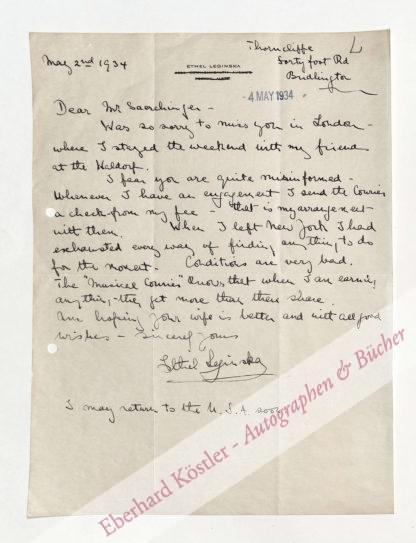 Thorncliffe
May 2nd 1934
ETHEL LEGINSKA
Forty foot Rd
Bridlington
4 MAY 1934
Dear Mr Saerchinger -
Was so sorry to miss you in London -
where I stayed the weekend with my friends
at the Waldorf.
I fear you are quite misinformed -
Whenever I have an engagement I send the Courier
a check from my fee - that is my arrangement
with them. When I left New York I had
exhausted every way of finding anything to do
for the moment. Conditions are very bad.
The "Musical Courier" knows that when I am earning
anything, they get more than their share.
Am hoping your wife is better and with all good
wishes - Sincerely yours
Ethel Leginska
I may return to the U.S.A. soon
Eberhard Köstler - Autographen & Bücher